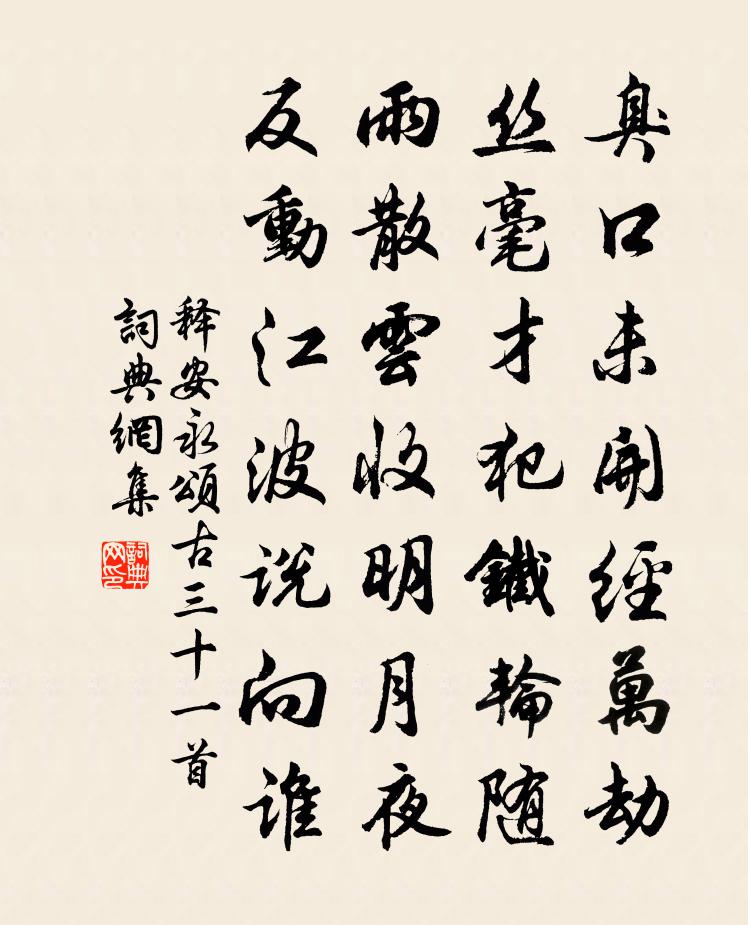 臭口未開經萬劫
丝毫才犯鐵輪随
雨散雲收明月夜
反動江波说向谁
释安永頌古三十一首
詞典網集
詞典网印